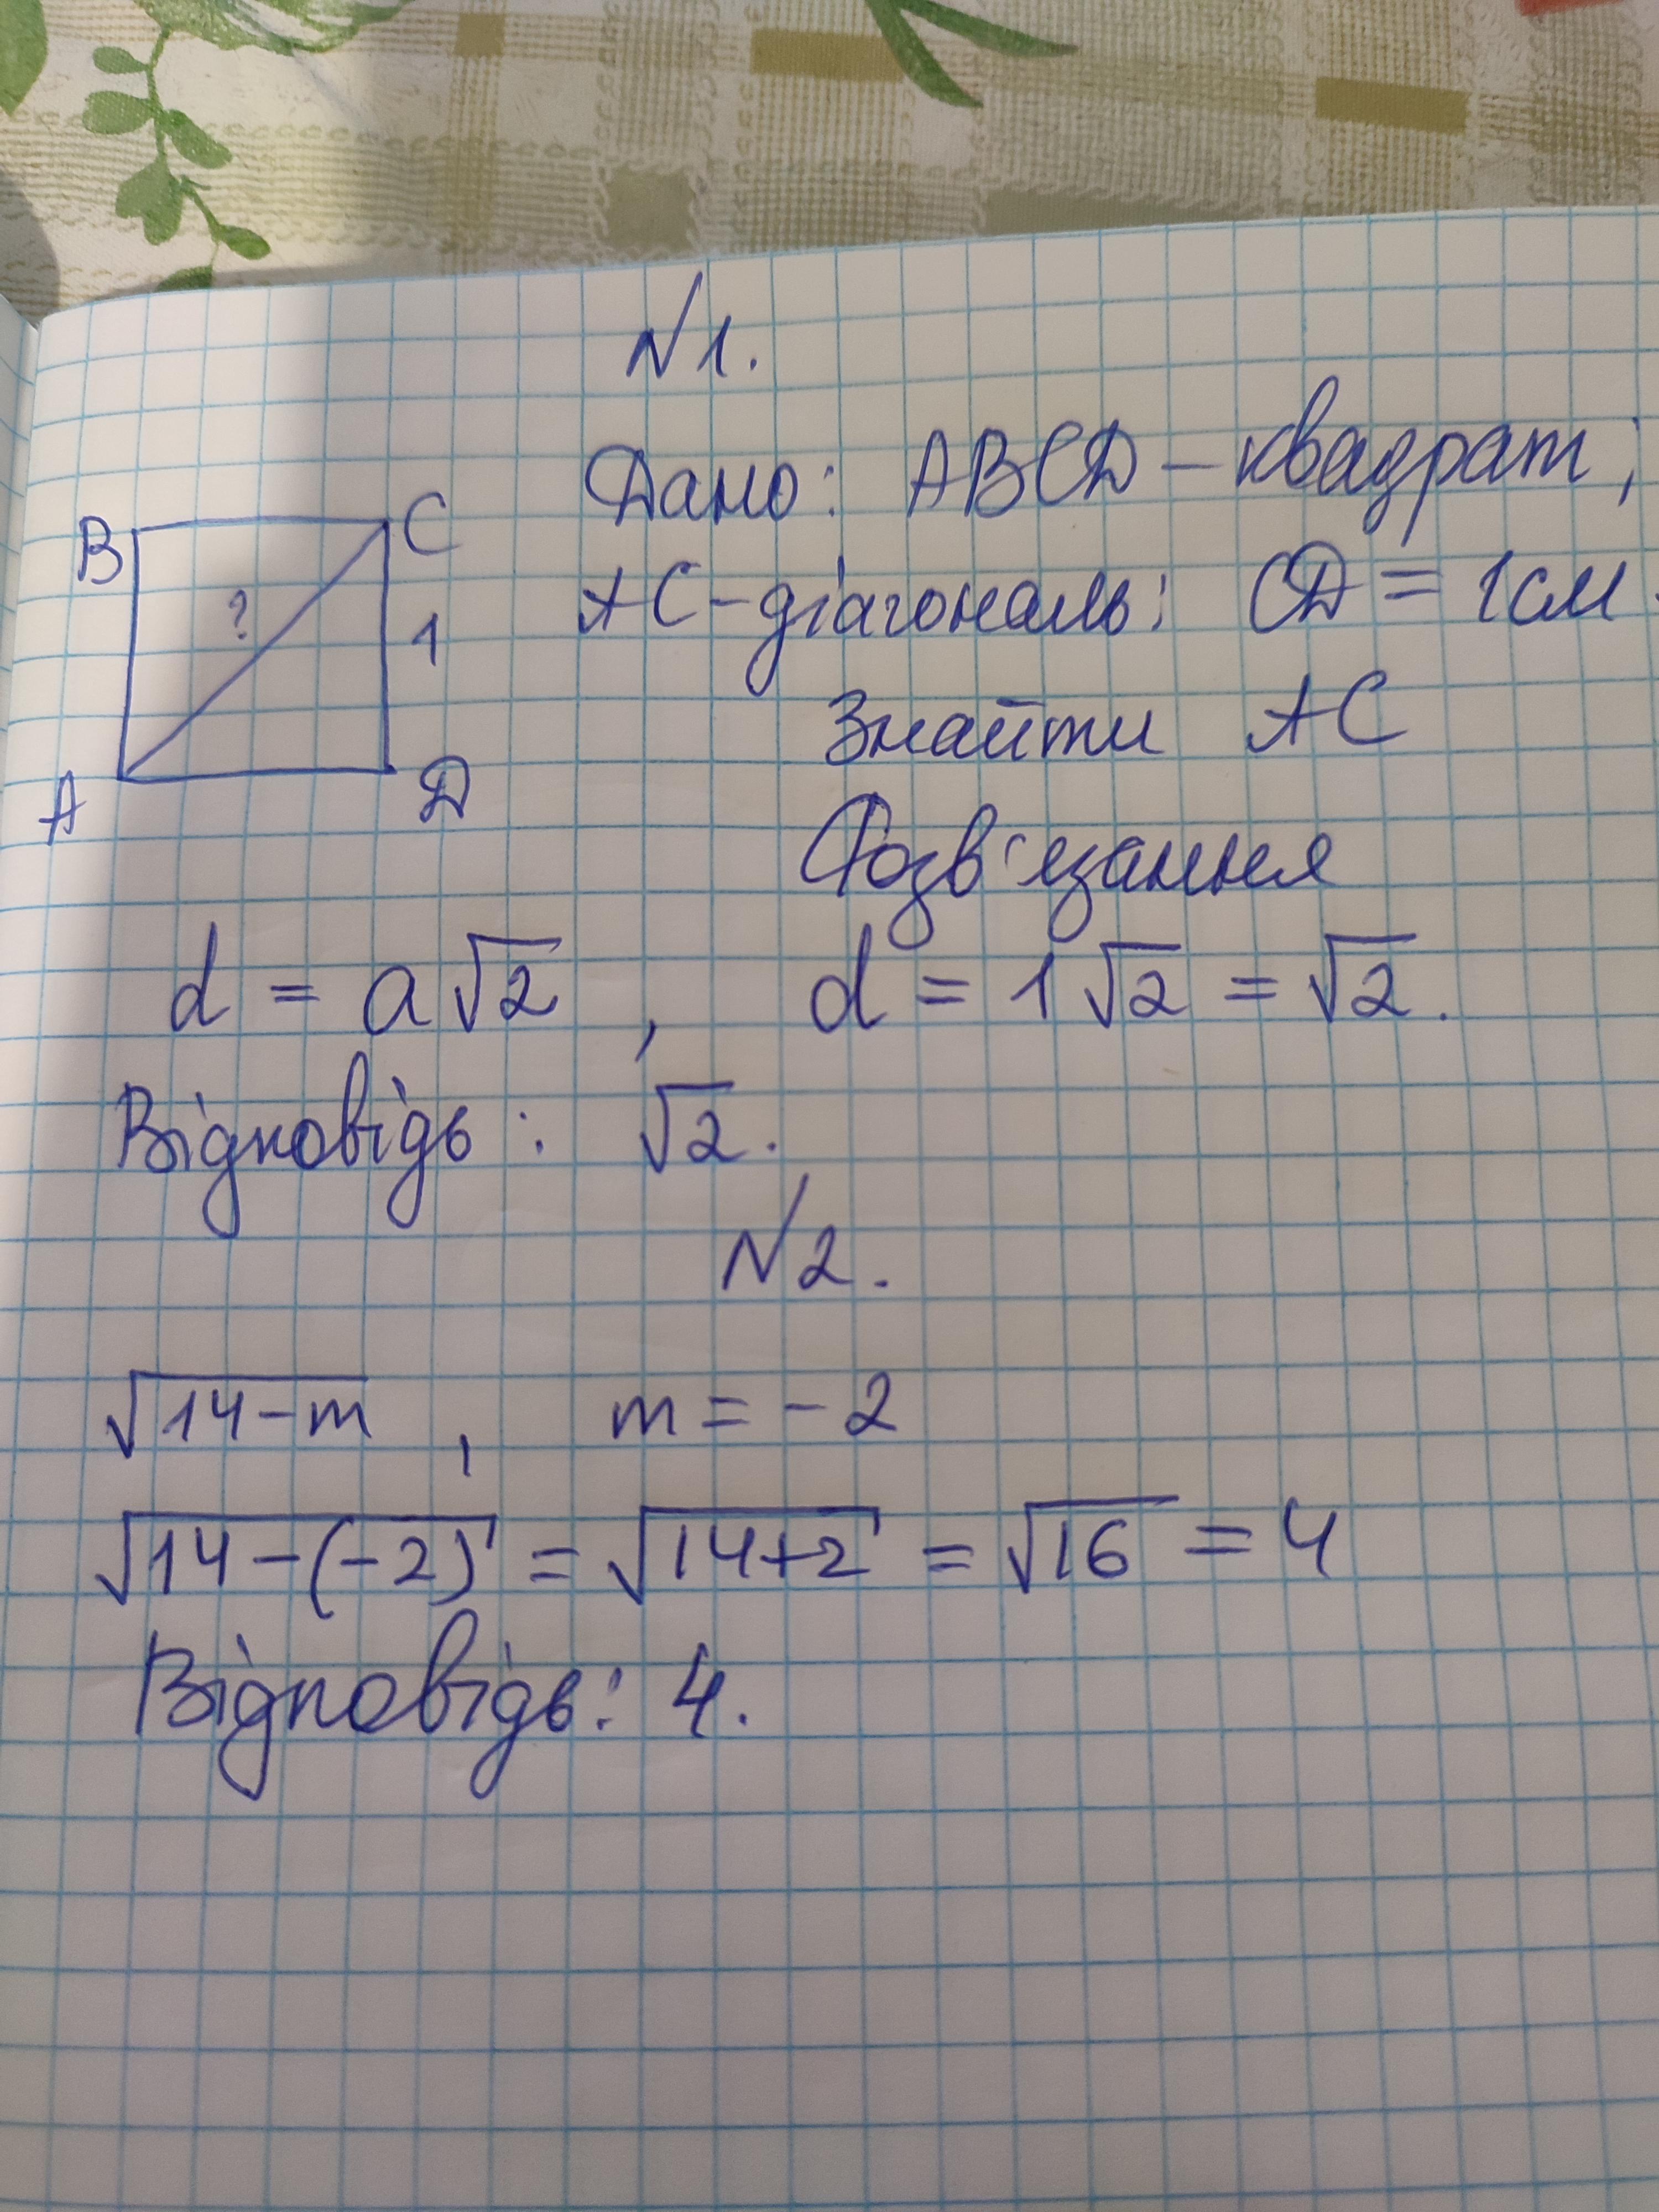 №1.
Дано: ABCD – квадрат;
B
C
?
1
A
D
AC – діагональ; CD = 1см.
Знайти AC
Розв'язання
d = a√2 , d = 1√2 = √2.
Відповідь: √2.
№2.
√(14-m) , m = -2
√(14-(-2)) = √(14+2) = √16 = 4
Відповідь: 4.